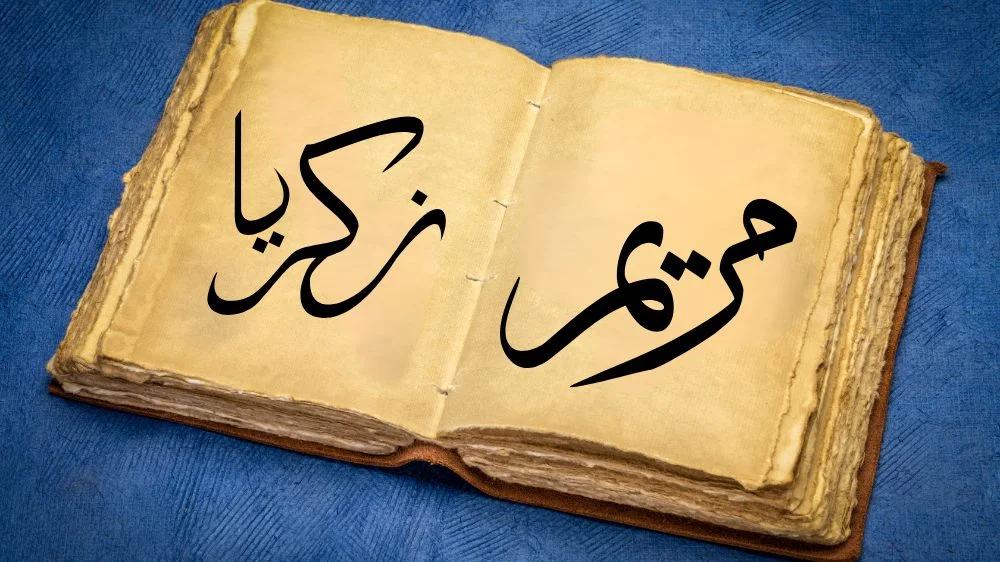 مريم
زكريا